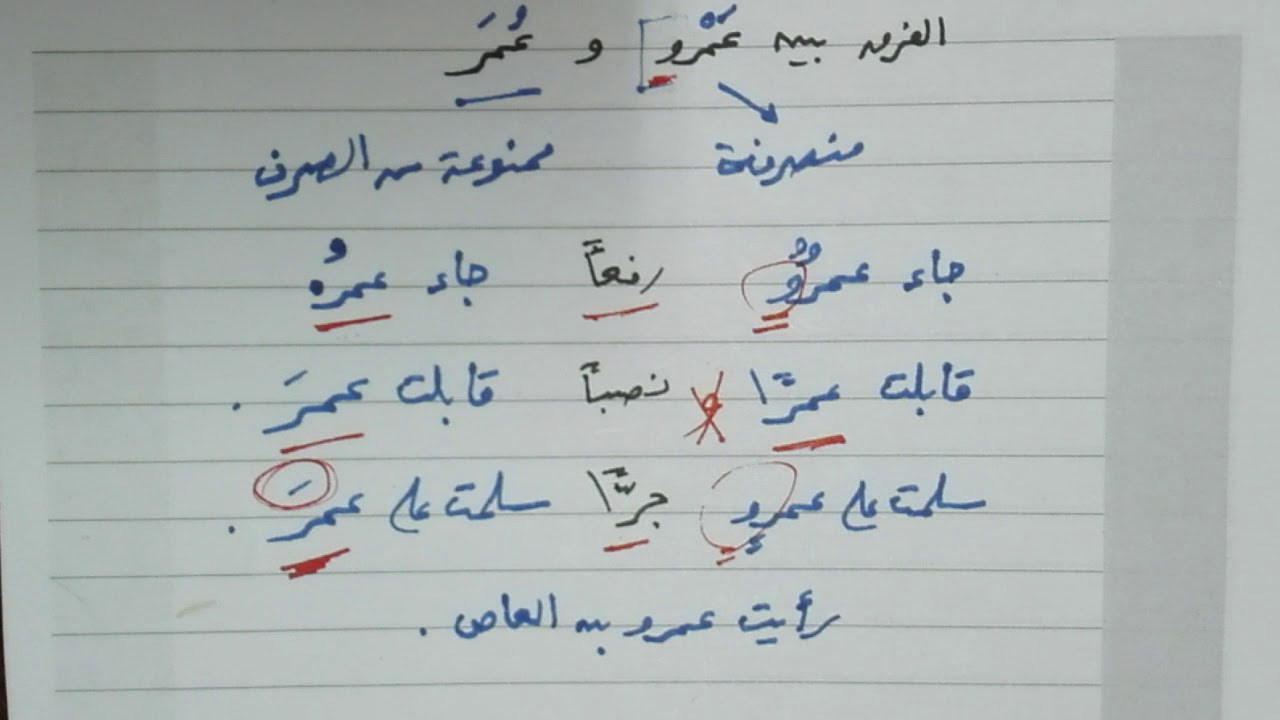 الفرق بين عَمْرو و عُمَرَ
منصرفة ممنوعة من الصرف
جاء عمروٌ رفعاً جاء عمرُ
قابلت عمرًا و نصباً قابلت عمرَ .
سلمت على عمروٍ جرًّا سلمت على عمرَ .
رأيت عمرو بن العاص .